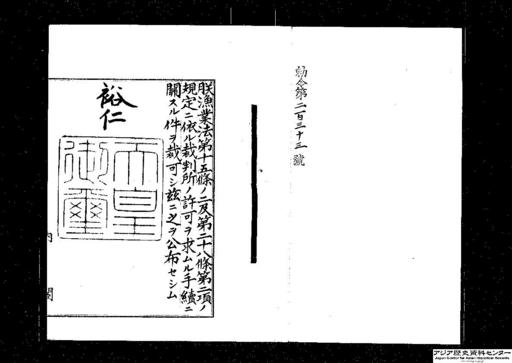 勅令第二百三十三號
朕漁業法第十五條ノ二及第二十八條第二項ノ
規定ニ依ル裁判所ノ許可ヲ求ムル手續ニ
關スル件ヲ裁可シ茲ニ之ヲ公布セシム
裕仁
天皇御璽
内閣
アジア歴史資料センター
Japan Center for Asian Historical Records